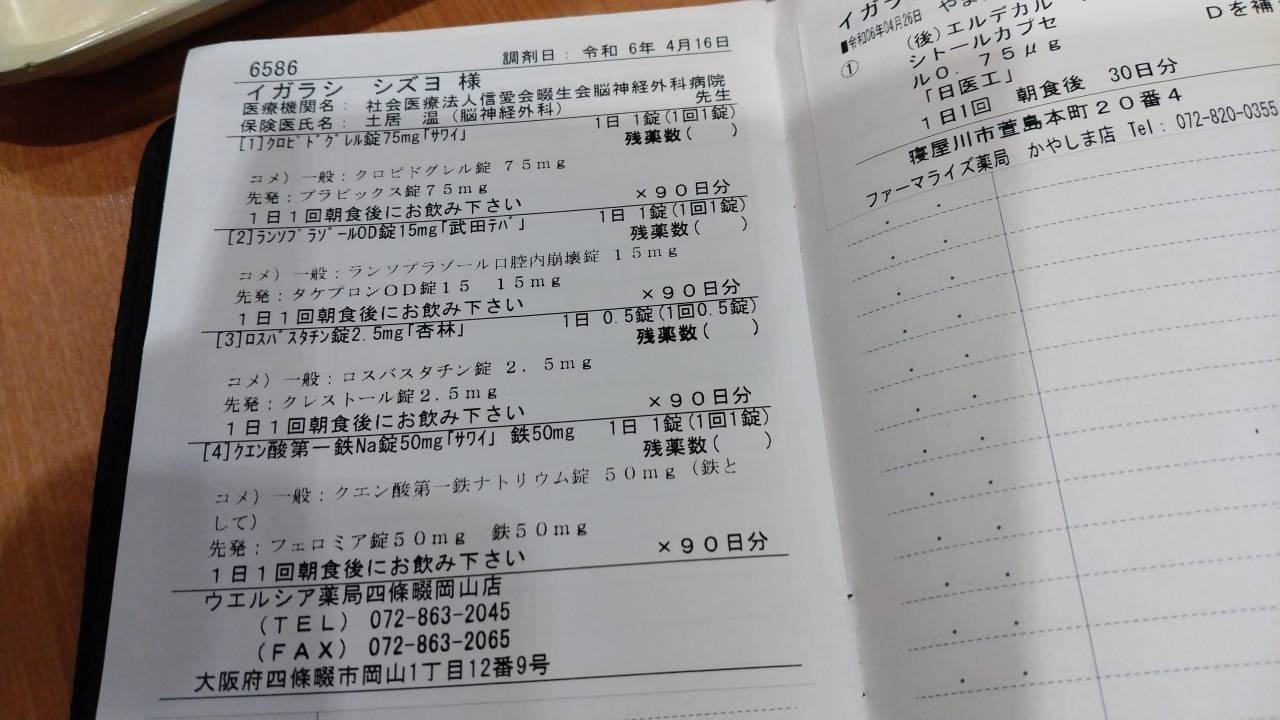 6586
調剤日： 令和 6年 4月16日
イガラシ シズヨ 様
医療機関名： 社会医療法人信愛会畷生会脳神経外科病院
保険医氏名： 土居 温（脳神経外科） 先生
[1]ｸﾛﾋﾟﾄﾞｸﾞﾚﾙ錠75mg｢ｻﾜｲ｣ 1日 1錠(1回1錠)
残薬数( )
コメ）一般：クロピドグレル錠 ７５ｍｇ
先発：プラビックス錠７５ｍｇ
１日１回朝食後にお飲み下さい ×９０日分
[2]ﾗﾝｿﾌﾟﾗｿﾞｰﾙOD錠15mg｢武田ﾃﾊﾞ｣ 1日 1錠(1回1錠)
残薬数( )
コメ）一般：ランソプラゾール口腔内崩壊錠 １５ｍｇ
先発：タケプロンＯＤ錠１５ １５ｍｇ
１日１回朝食後にお飲み下さい ×９０日分
[3]ﾛｽﾊﾞｽﾀﾁﾝ錠2.5mg｢杏林｣ 1日 0.5錠(1回0.5錠)
残薬数( )
コメ）一般：ロスバスタチン錠 ２．５ｍｇ
先発：クレストール錠２.５ｍｇ
１日１回朝食後にお飲み下さい ×９０日分
[4]ｸｴﾝ酸第一鉄Na錠50mg｢ｻﾜｲ｣ 鉄50mg 1日 1錠(1回1錠)
残薬数( )
コメ）一般：クエン酸第一鉄ナトリウム錠 ５０ｍｇ（鉄と
して）
先発：フェロミア錠５０ｍｇ 鉄５０ｍｇ
１日１回朝食後にお飲み下さい ×９０日分
ウエルシア薬局四條畷岡山店
（ＴＥＬ） 072-863-2045
（ＦＡＸ） 072-863-2065
大阪府四條畷市岡山1丁目12番9号
イガラ
■令和06年04月26日
① （後）エルデカル
Ｄを補
シトールカプセ
ル０．７５μｇ
「日医工」
１日1回 朝食後 30日分
寝屋川市萱島本町２０番４
ファーマライズ薬局 かやしま店 Tel：072-820-0355